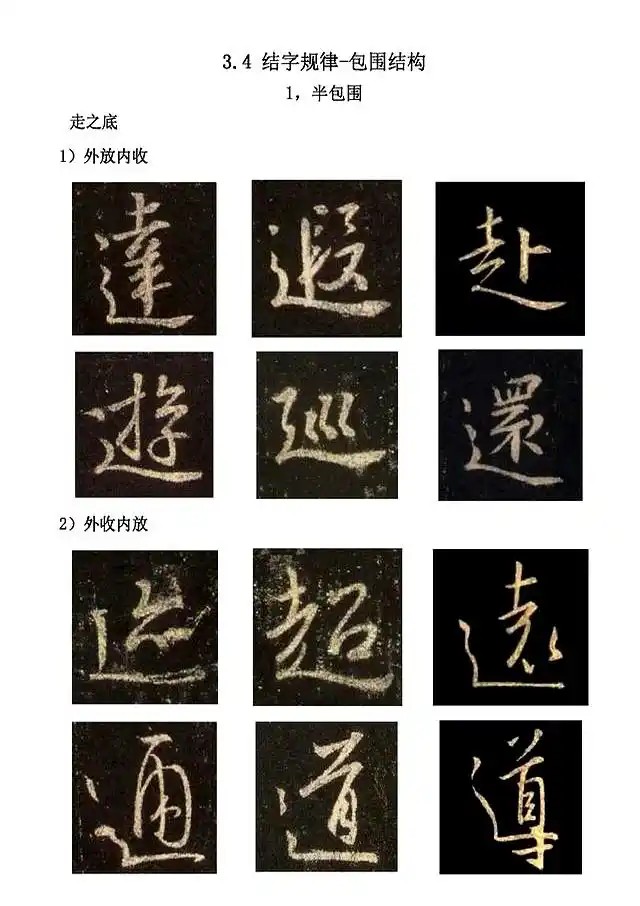 3.4 结字规律-包围结构
1，半包围
走之底
1）外放内收
達 遐 赴
遊 巡 還
2）外收内放
迹 超 遠
通 道 導